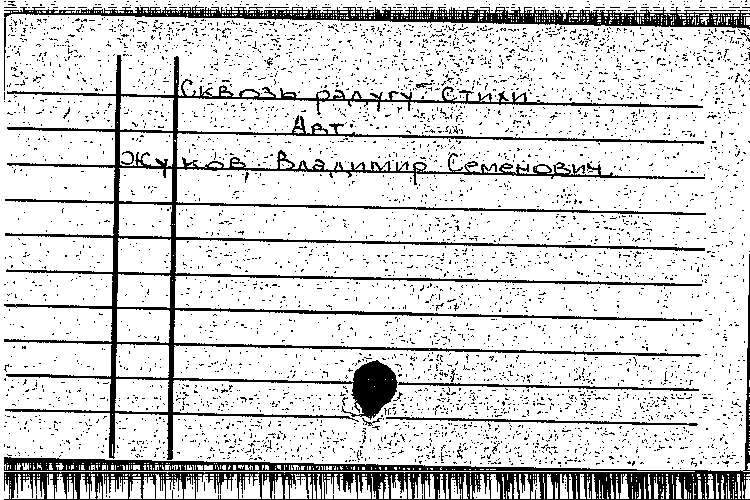 Сквозь радугу. Стихи.
Авт.:
Жуков, Владимир Семенович.